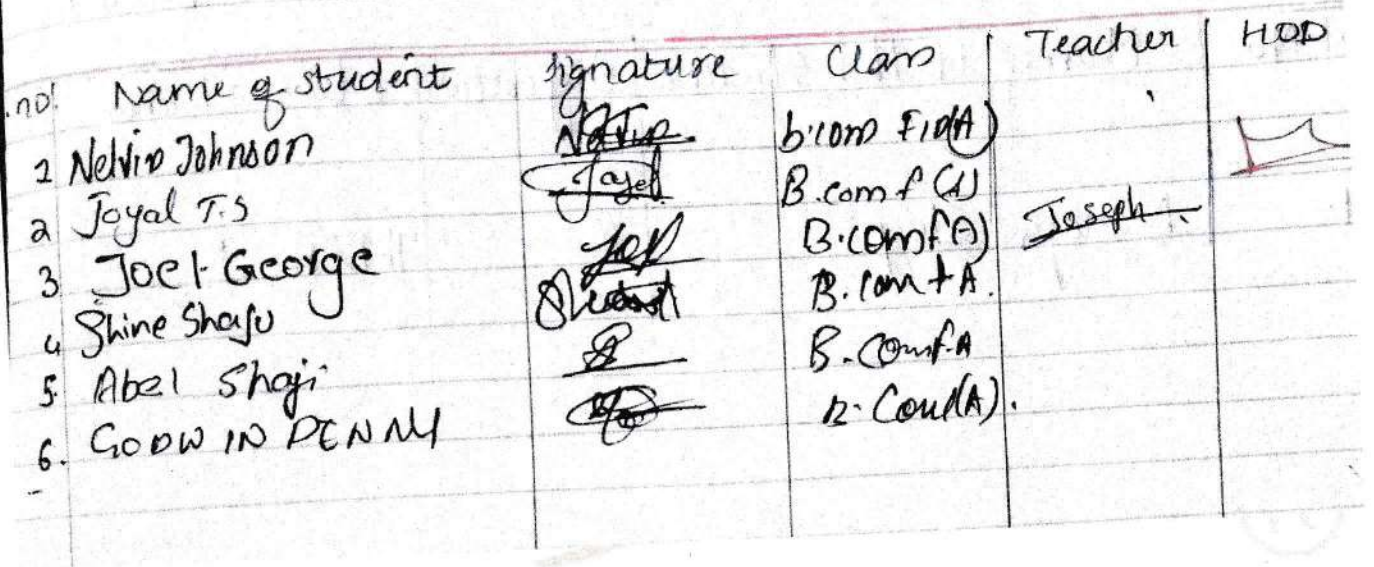 .no. Name of student Signature Class Teacher HOD
1 Nelvin Johnson Nelvin b.com Fin(A)
2 Joyal T.S Joyel B.com f (A)
3 Joel George B.com f A) Joseph
4 Shine Shaju B.com f A.
5. Abel Shaji B.com f.A
6. GODWIN DENNY B.Com (A).